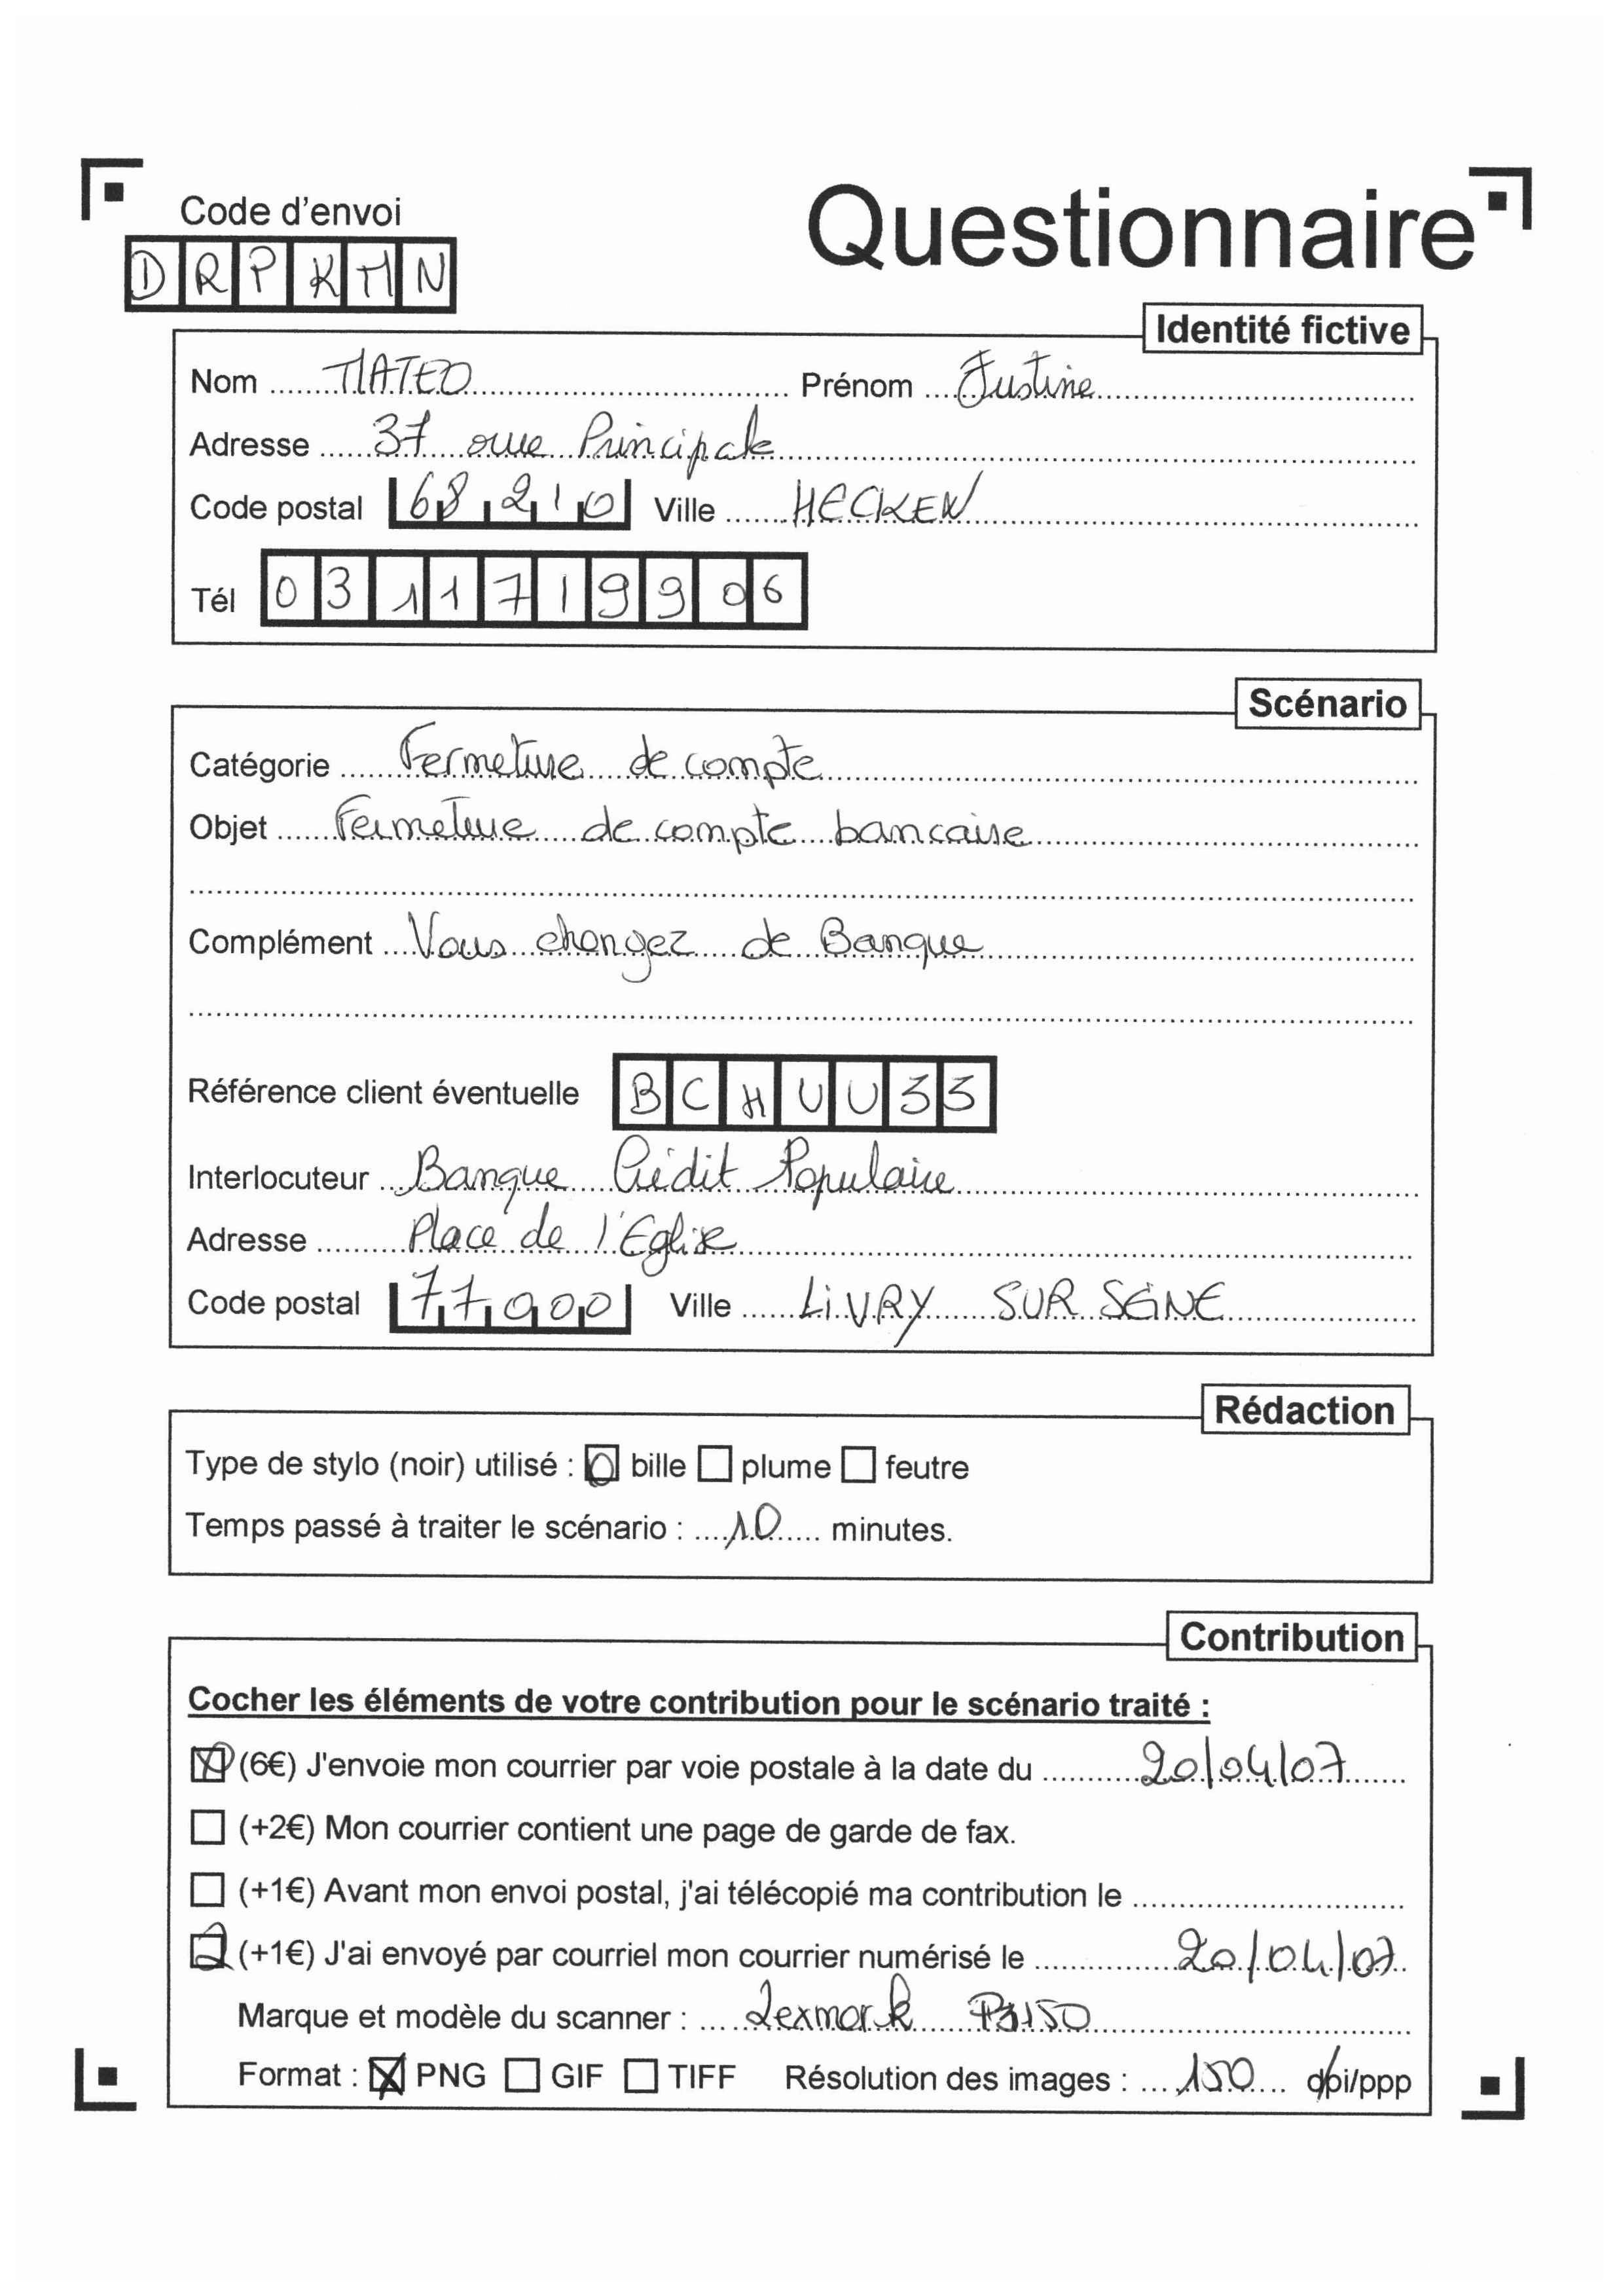 Code d'envoi
Questionnaire
DRPKMN
Identité fictive
Nom MATEO Prénom Justine
Adresse 37 rue Principale
Code postal 68210 Ville HECKEN
Tél 0311719906
Scénario
Catégorie Fermeture de compte
Objet Fermeture de compte bancaire
Complément Vous changez de Banque
Référence client éventuelle BCHUU33
Interlocuteur Banque Crédit Populaire
Adresse Place de l'Eglise
Code postal 77000 Ville LiVRY SUR SEINE
Rédaction
Type de stylo (noir) utilisé : bille plume feutre
Temps passé à traiter le scénario : 10 minutes.
Contribution
Cocher les éléments de votre contribution pour le scénario traité :
(6€) J'envoie mon courrier par voie postale à la date du 20/04/07
(+2€) Mon courrier contient une page de garde de fax.
(+1€) Avant mon envoi postal, j'ai télécopié ma contribution le
(+1€) J'ai envoyé par courriel mon courrier numérisé le 20/04/07
Marque et modèle du scanner : Lexmark P3150
Format : PNG GIF TIFF Résolution des images : 150 dpi/ppp